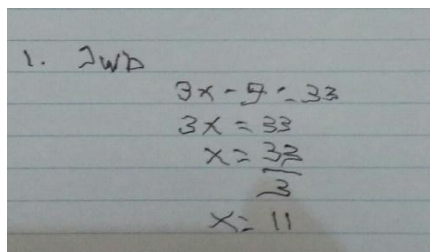 1. Jwb
3x - 9 = 33
3x = 33
x = 33
3
x = 11